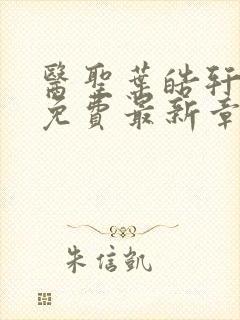 醫聖葉皓軒
免費最新章
朱信凱